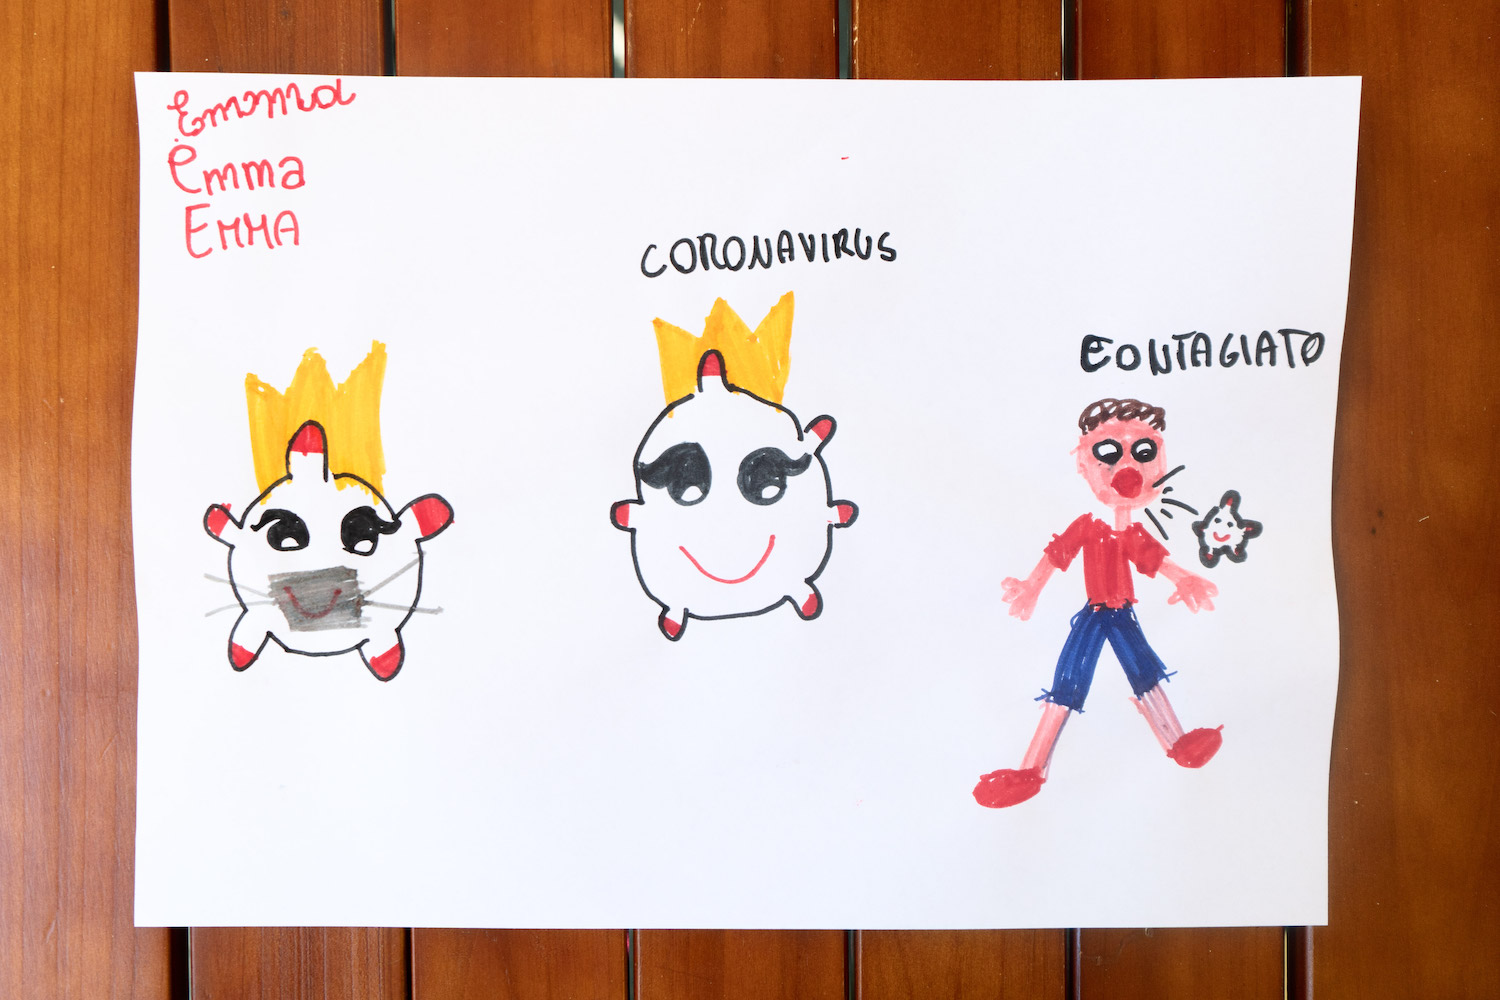 Emma
Emma
EMMA
CORONAVIRUS
CONTAGIATO